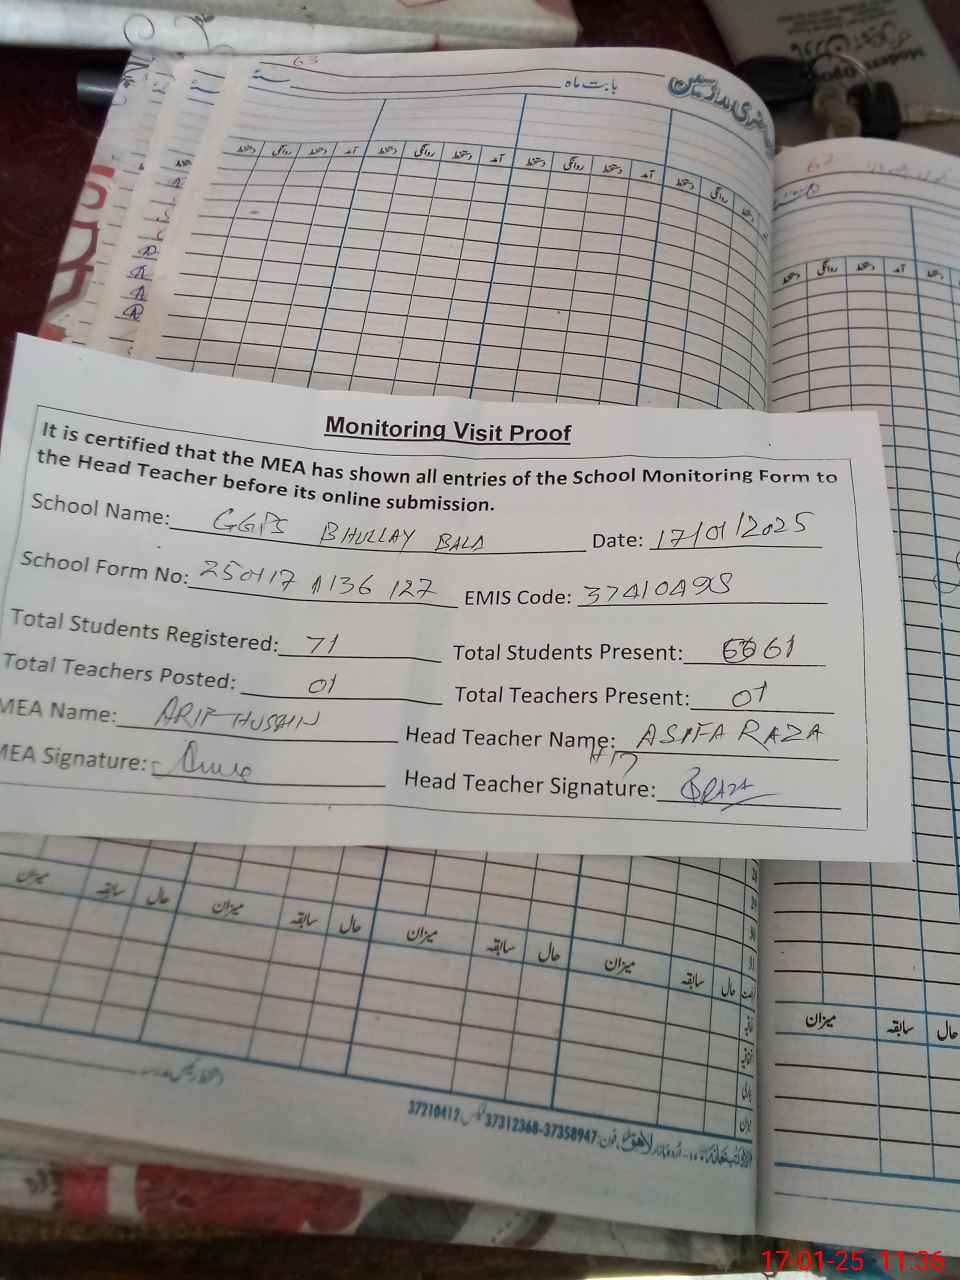 63
بابت ماہ
سنہ
دستخط روانگی دستخط آمد دستخط روانگی دستخط آمد دستخط روانگی دستخط آمد دستخط روانگی دستخط
دستخط روانگی دستخط آمد دستخط
Monitoring Visit Proof
It is certified that the MEA has shown all entries of the School Monitoring Form to
the Head Teacher before its online submission.
School Name: GGPS BHULLAY BALA Date: 17/01/2025
School Form No: 250117 1136 127 EMIS Code: 37410498
Total Students Registered: 71 Total Students Present: 61
Total Teachers Posted: 01 Total Teachers Present: 01
MEA Name: ARIF HUSSAIN Head Teacher Name: ASIFA RAZA
MEA Signature: Head Teacher Signature:
میزان سابقہ حال میزان سابقہ حال میزان سابقہ حال میزان سابقہ حال
میزان سابقہ حال
37210412 37312368-37358947 فون: لاہور
17-01-25 11:36